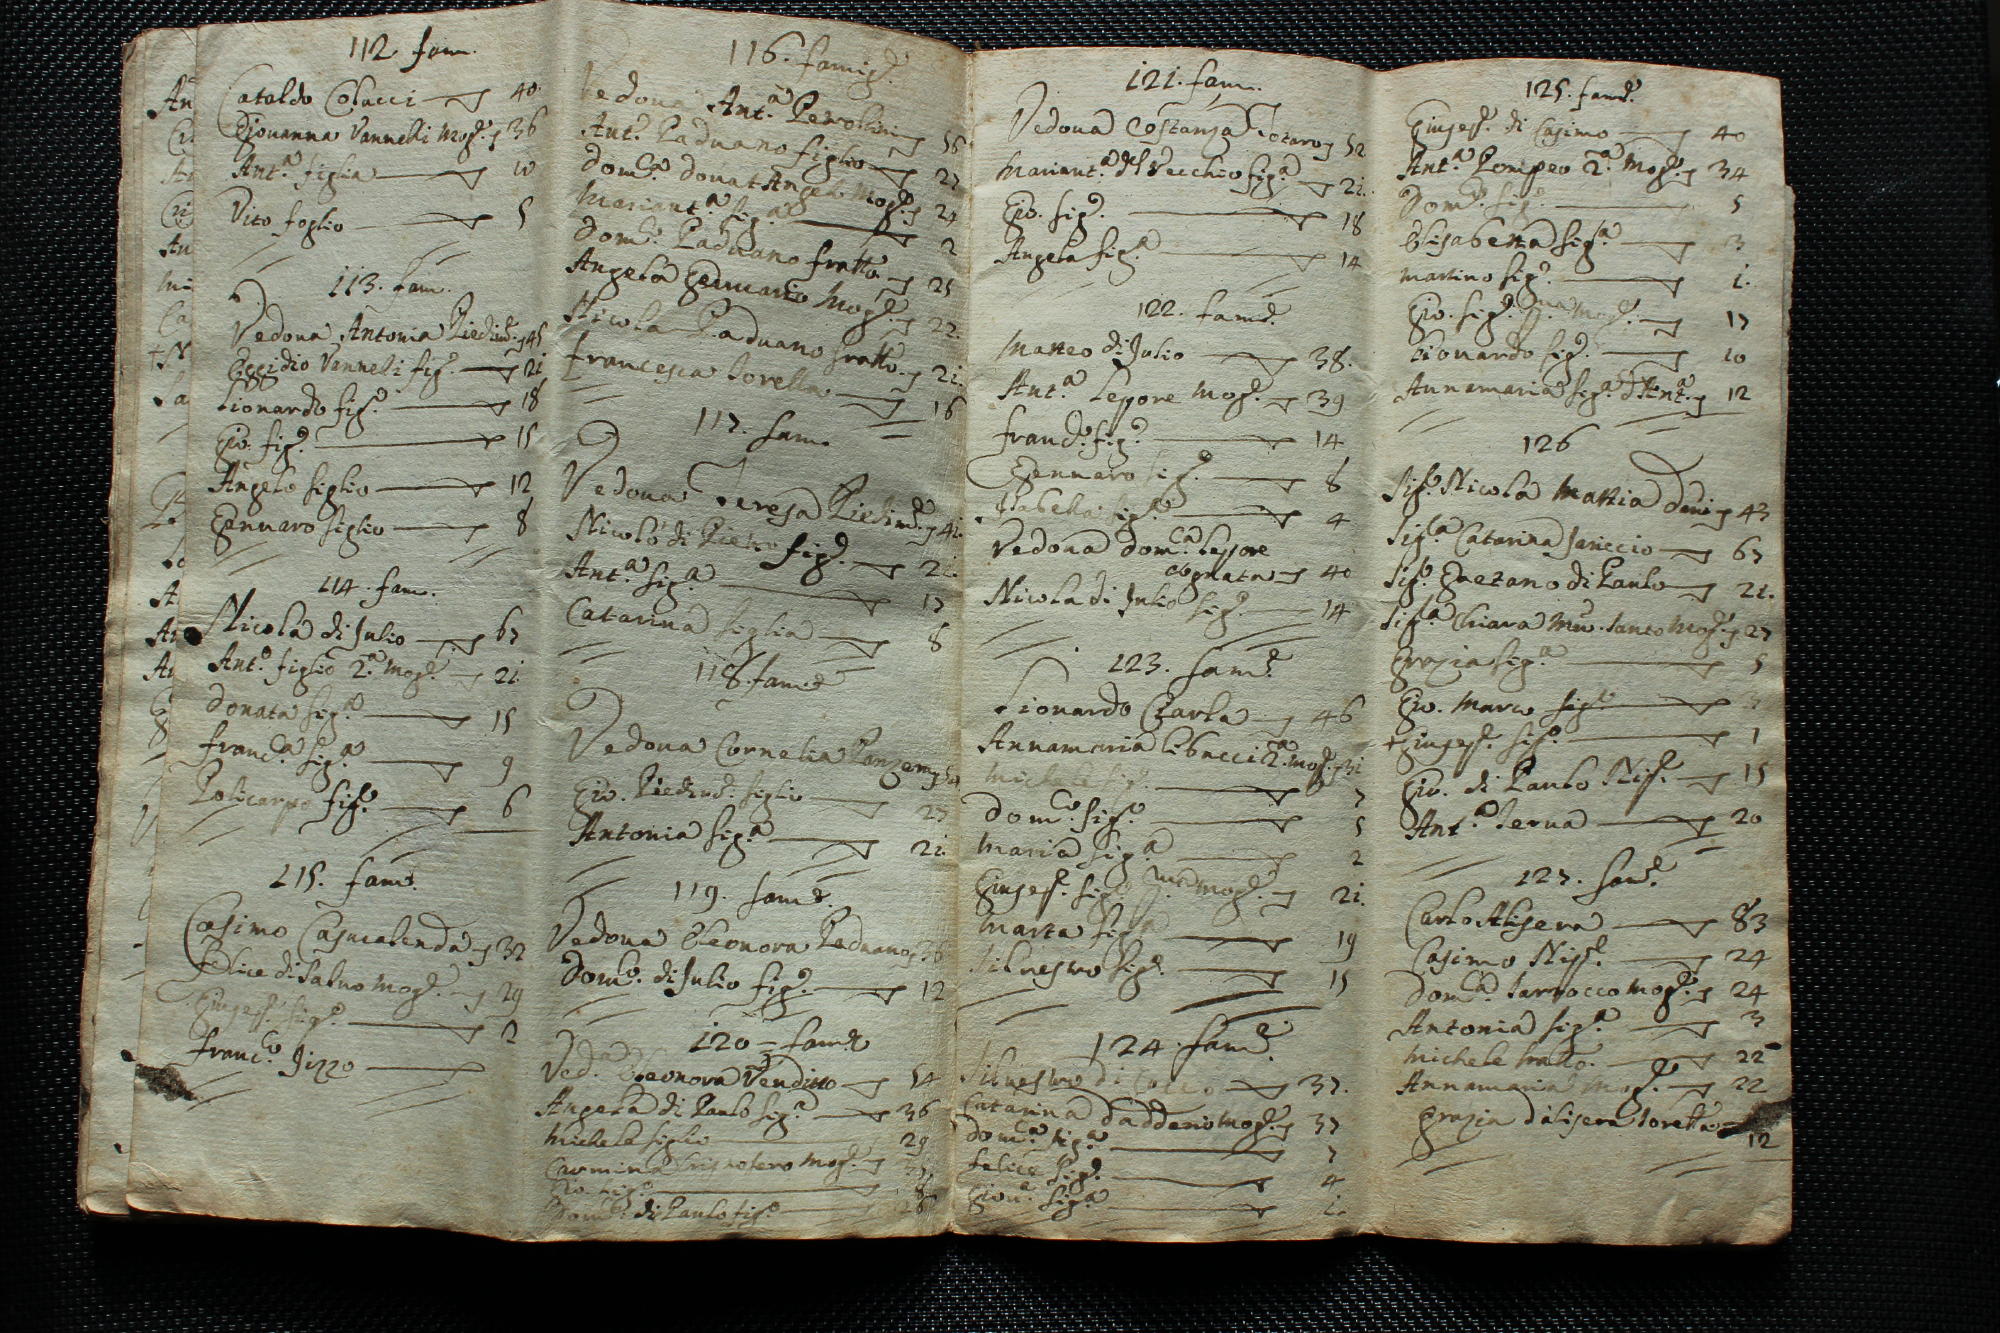 112 fam.
Cataldo Colacci 40
Giovanna Vannelli mog.e 36
Ant.a figlia 10
Vito foglio 5
113. fam.
Vedova Antonia Piedim.e 45
Eggidio Vannelli fig. 21
Lionardo fig.o 18
Gio. fig.o 15
Angelo figlio 12
Gennaro figlio 8
114. fam.
Nicola di Julio 67
Ant.o figlio 2.a mog.e 21
Donata fig.a 15
Franc.a fig.a 9
Policarpo fig.o 6
115. fam.e
Cosimo Casucalenda 32
Felice di Salvo mog.e 29
Giusep.e fig.o 2
Franc.o Jizzo
116. famig.e
Vedova Ant.a 56
Ant.o Paduano figlio 27
Dom.ca Donat Angelo mog.e 24
Mariant.a fig.a 2
Dom.o Paduano fratto. 25
Angela Gennario mog.e 22.
Nicola Paduano fratto. 21.
Francesca sorella 16
117. fam.
Vedova Teresa Piedim.e 41.
Nicolò di Pietro fig.o 21.
Ant.a fig.a 17
Catarina figlia 8
118. fam.e
Vedova Cornelia
Gio. Piedim.e figlio 27
Antonia fig.a 21.
119. fam.e
Vedova Eleonora Paduano 36
Dom.co di Julio fig.o 12
120 = fam.e
Ved.a Eleonora Venditto 54
Angela di Paulo fig.a 36
Michele figlio 29
Carmina mog.e
Gio. fig.o
Dom.co di Paulo fig.o 26
121. fam.
Vedova Costanza 52
Mariant.a del Vecchio fig.a 21.
Gio. fig.o 18
Angela fig.a 14
122. fam.e
Matteo di Julio 38.
Ant.a Lepore mog.e 39
Franc.o fig.o 14
Gennaro fig.o 8
Isabella fig.a 4
Vedova Dom.ca Lepore
cognata 40
Nicola di Julio fig.o 14
123. fam.e
Lionardo Ciarla 46
Annamaria Libucci 2.a mog.e 31
Michele fig.o 7
Dom.co fig.o 5
Maria fig.a 2
Giusep.e fig.o p.ma mog.e 21.
Marta fig.a 19
Silvestro fig.o 15
124. fam.e
Silvestro di 37.
Catarina Daddario mog.e 37
Dom.ca fig.a 7
Felice fig.o 4
Giov.a fig.a 1.
125. fam.e
Giusep.e di Cosimo 40
Ant.a Pompeo 2.a mog.e 34
Dom.co fig.o 5
Elisabetta fig.a 3
Martino fig.o 1.
Gio. fig.o p.ma mog.e 17
Lionardo fig.o 10
Annamaria fig.a d'Ant.a 12
126
Sig.r Nicola Mattia 43
Sig.a Catarina Janiccio 67
Sig.r Gaetano di Paulo 21.
Sig.a Chiara mog.e 27
Grazia fig.a 5
Gio. Marco fig.o 3
+ Giusep.e fig.o 1
Gio. di Paulo Nip.e 15
Ant.a serva 20
127. fam.e
Carlo Alisera 83
Cosimo Nip.e 24
Dom.ca Iarrocco mog.e 24
Antonia fig.a 3
Michele fratto. 22
Annamaria mog.e 22
Grazia d'Alisera sorella 12